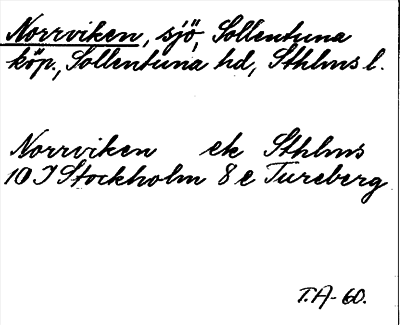 Norrviken, sjö, Sollentuna
köp., Sollentuna hd, Sthlms l.
Norrviken ek Sthlms
10 I Stockholm 8 e Tureberg
T.A-60.